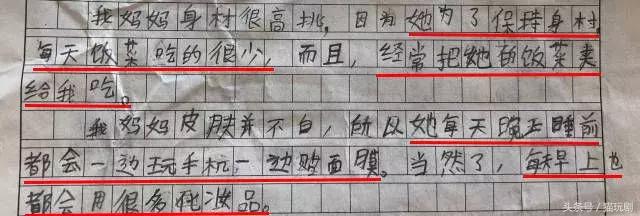 我妈妈身材很高挑，因为她为了保持身材，
每天饭菜吃的很少，而且，经常把她的饭菜夹
给我吃。
我妈妈皮肤并不白，所以她每天晚上睡前
都会一边玩手机，一边敷面膜。当然了，每天早上也
都会用很多化妆品。
头条号／猫玩剧